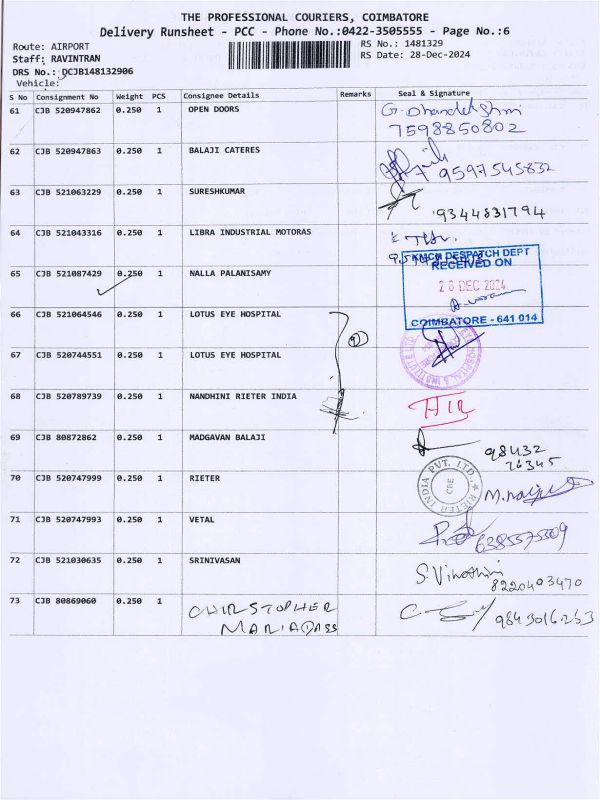 THE PROFESSIONAL COURIERS, COIMBATORE
Delivery Runsheet - PCC - Phone No.:0422-3505555 - Page No.:6
Route: AIRPORT RS No.: 1481329
Staff: RAVINTRAN RS Date: 28-Dec-2024
DRS No.: DCJB148132906
Vehicle:
S No Consignment No Weight PCS Consignee Details Remarks Seal & Signature
61 CJB 520947862 0.250 1 OPEN DOORS
7598850802
62 CJB 520947863 0.250 1 BALAJI CATERES
9597545832
63 CJB 521063229 0.250 1 SURESHKUMAR
9344831794
64 CJB 521043316 0.250 1 LIBRA INDUSTRIAL MOTORAS
KMCH DESPATCH DEPT
RECEIVED ON
65 CJB 521087429 0.250 1 NALLA PALANISAMY
28 DEC 2024
66 CJB 521064546 0.250 1 LOTUS EYE HOSPITAL
COIMBATORE - 641 014
67 CJB 520744551 0.250 1 LOTUS EYE HOSPITAL
HOSPITAL & INSTITUTE LTD
68 CJB 520789739 0.250 1 NANDHINI RIETER INDIA
69 CJB 80872862 0.250 1 MADGAVAN BALAJI
98432
76345
70 CJB 520747999 0.250 1 RIETER
RIETER INDIA PVT. LTD.
CBE
71 CJB 520747993 0.250 1 VETAL
6385575309
72 CJB 521030635 0.250 1 SRINIVASAN
S. Vinothini
8220403470
73 CJB 80869060 0.250 1 CHIRSTOPHER
MARIADASS
9843016253